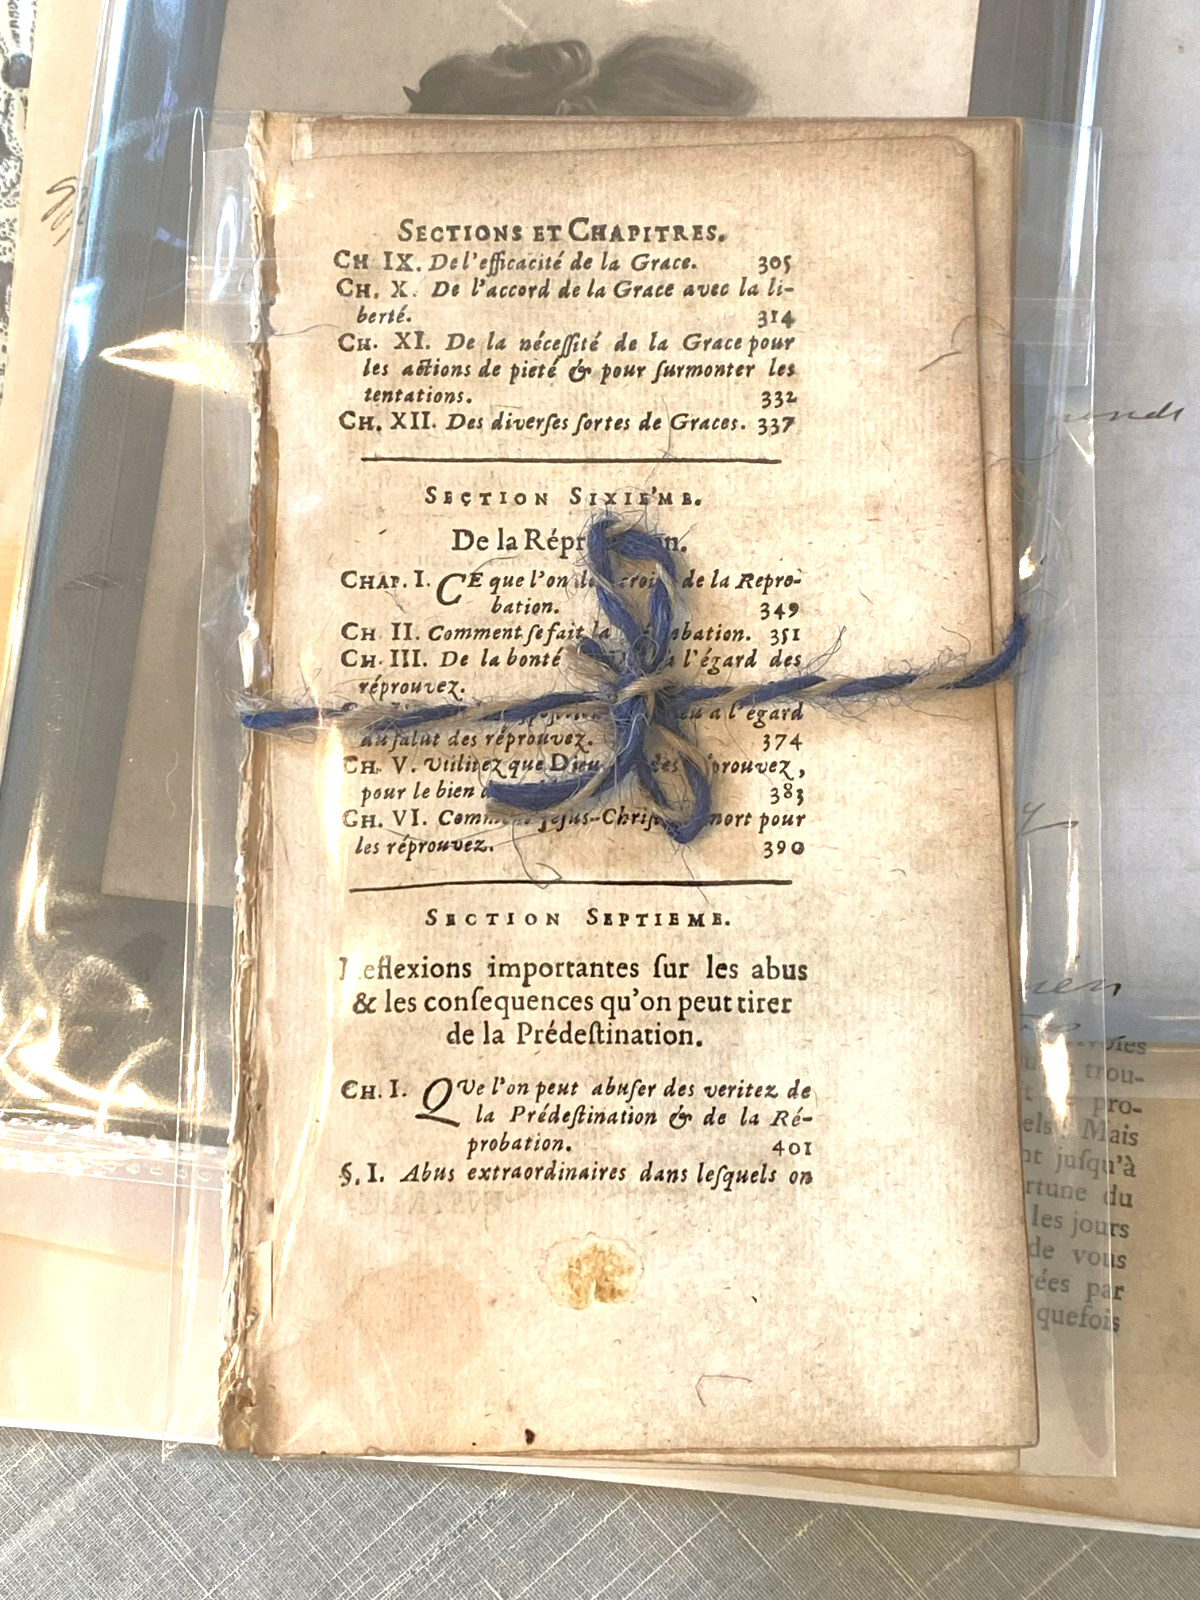 SECTIONS ET CHAPITRES.
CH IX. De l'efficacité de la Grace. 305
CH. X. De l'accord de la Grace avec la li-
berté. 314
CH. XI. De la néceſſité de la Grace pour
les actions de pieté & pour ſurmonter les
tentations. 332
CH. XII. Des diverſes ſortes de Graces. 337
SECTION SIXIE'ME.
De la
CHAP. I. CE que l'on de la Repro-
bation. 349
CH II. Comment ſe fait la 351
CH. III. De la bonté l'égard des
réprouvez.
a l'égard
du ſalut des réprouvez. 374
CH. V. Utilitez que Dieu
pour le bien 383
CH. VI. Jeſus- mort pour
les réprouvez. 390
SECTION SEPTIEME.
Reflexions importantes ſur les abus
& les conſequences qu'on peut tirer
de la Prédeſtination.
CH. I. QUe l'on peut abuſer des veritez de
la Prédeſtination & de la Ré-
probation. 401
§. I. Abus extraordinaires dans leſquels on
trou-
pro-
Mais
juſqu'à
du
les jours
de vous
par